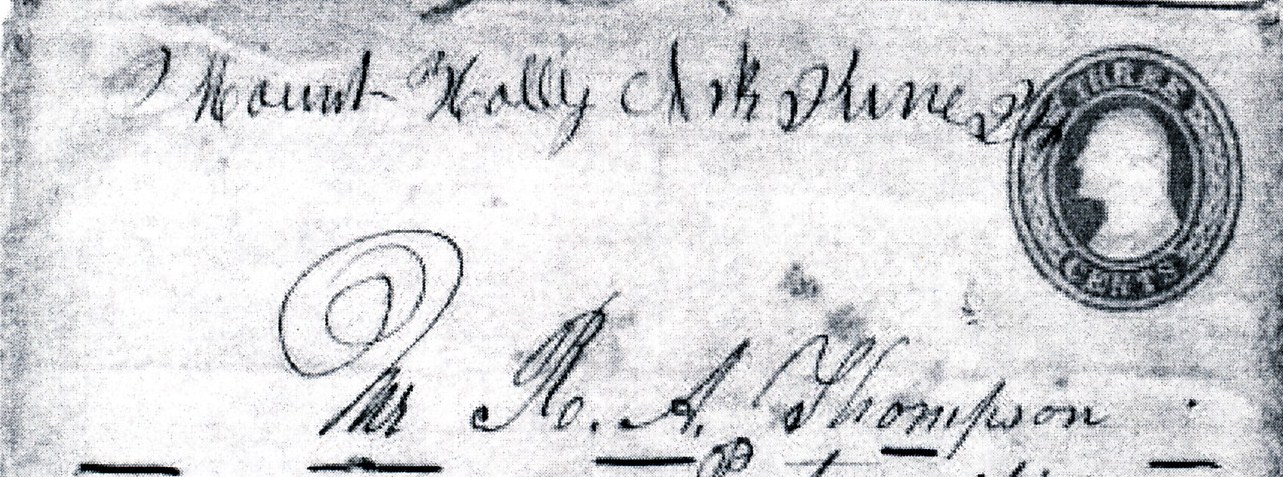 Mount Holly Ark June
THREE
CENTS
Mr R. A. Thompson